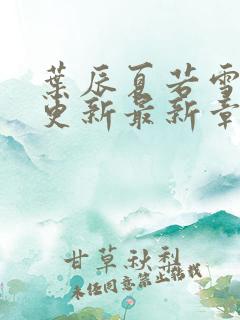 葉辰夏若雪
更新最新章
甘草秋梨
未经同意禁止转载